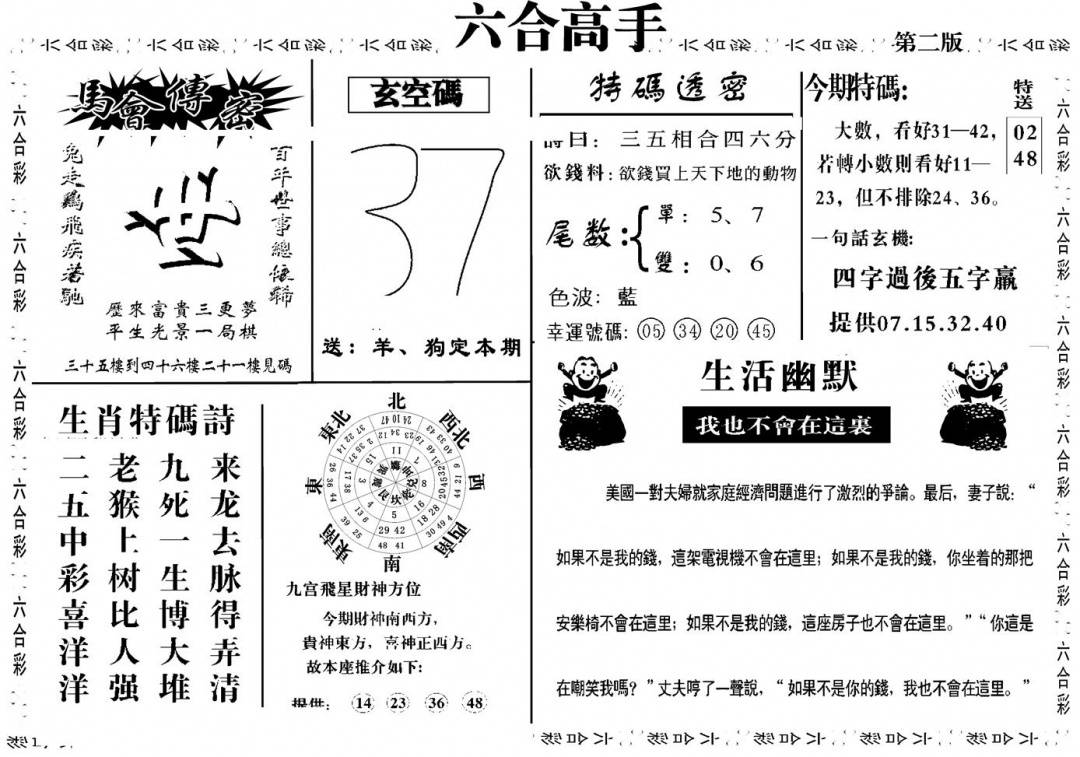 六合高手
第二版
馬會傳密
兔走鷄飛疾若馳
百年世事總依稀
歷來富貴三更夢
平生光景一局棋
三十五樓到四十六樓二十一樓見碼
玄空碼
37
送：羊、狗定本期
特碼透密
詩曰：三五相合四六分
欲錢料：欲錢買上天下地的動物
尾数：
單：5、7
雙：0、6
色波：藍
幸運號碼：05 34 20 45
今期特碼：
大數，看好31—42，
若轉小數則看好11—
23，但不排除24、36。
特送
02
48
一句話玄機：
四字過後五字贏
提供07.15.32.40
生肖特碼詩
来龙去脉得弄清
九死一生博大堆
老猴上树比人强
二五中彩喜洋洋
北
西北
西
西南
南
東南
東
東北
九宫飛星財神方位
今期財神南西方，
貴神東方，喜神正西方。
故本座推介如下：
提供：14 23 36 48
生活幽默
我也不會在這裏
美國一對夫婦就家庭經濟問題進行了激烈的爭論。最后，妻子說：“
如果不是我的錢，這架電視機不會在這里；如果不是我的錢，你坐着的那把
安樂椅不會在這里；如果不是我的錢，這座房子也不會在這里。”“你這是
在嘲笑我嗎？”丈夫哼了一聲說，“如果不是你的錢，我也不會在這里。”
六合彩 六合彩 六合彩 六合彩 六合彩